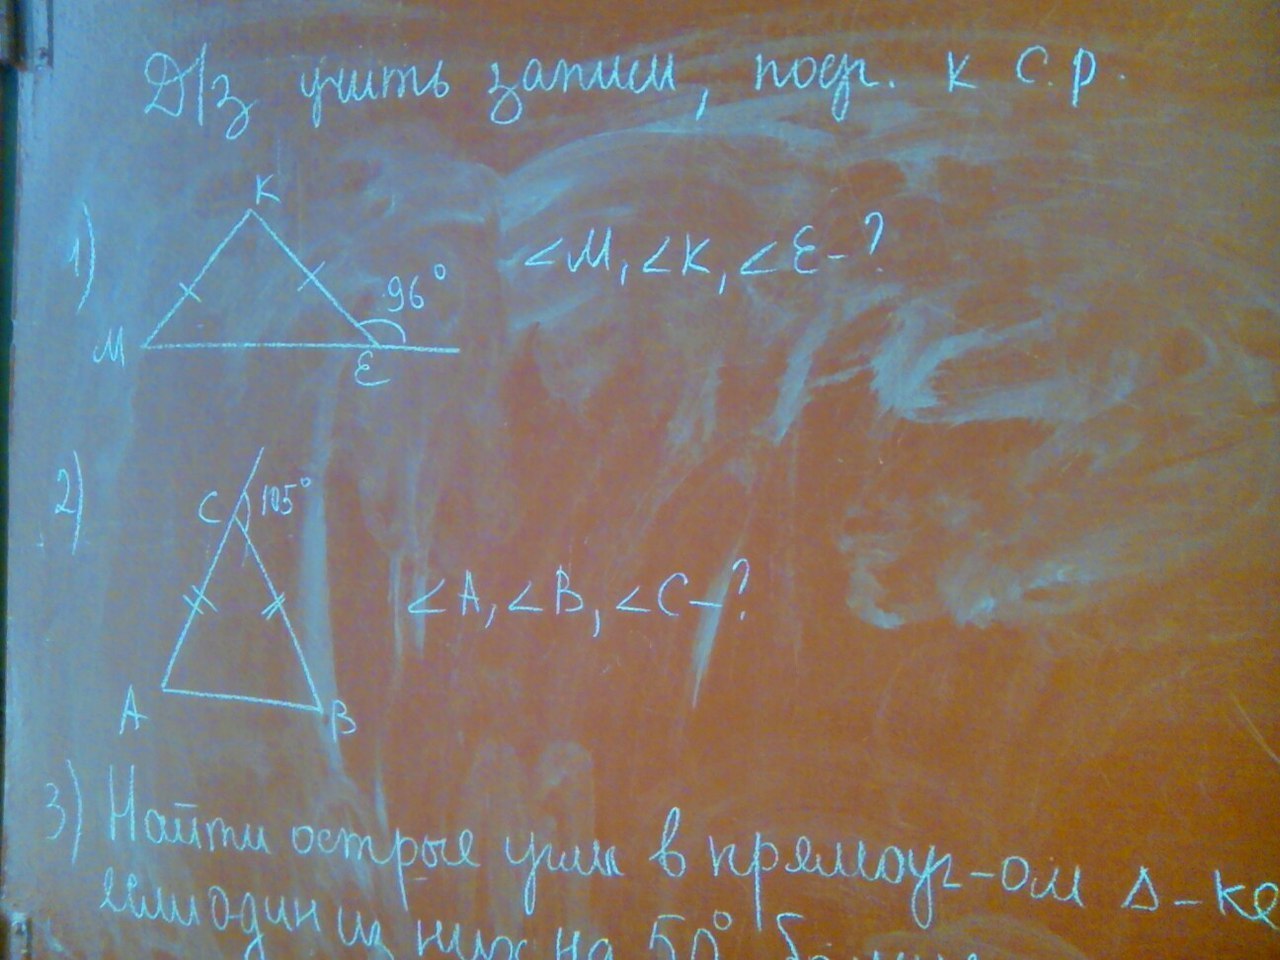 Д/з учить записи, подг. к С.р.
1)
K
96°
M
E
∠M, ∠K, ∠E-?
2)
C
105°
A
B
∠A, ∠B, ∠C-?
3) Найти острые углы в прямоуг-ом Δ-ке
если один из них на 50° больше